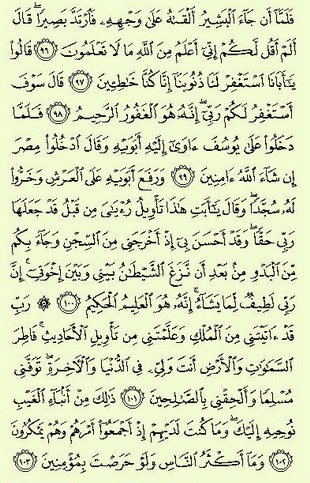 فَلَمَّآ أَن جَآءَ ٱلْبَشِيرُ أَلْقَىٰهُ عَلَىٰ وَجْهِهِۦ فَٱرْتَدَّ بَصِيرًاۖ قَالَ
أَلَمْ أَقُل لَّكُمْ إِنِّىٓ أَعْلَمُ مِنَ ٱللَّهِ مَا لَا تَعْلَمُونَ ٩٦ قَالُوا۟
يَٰٓأَبَانَا ٱسْتَغْفِرْ لَنَا ذُنُوبَنَآ إِنَّا كُنَّا خَٰطِـِٔينَ ٩٧ قَالَ سَوْفَ
أَسْتَغْفِرُ لَكُمْ رَبِّىٓۖ إِنَّهُۥ هُوَ ٱلْغَفُورُ ٱلرَّحِيمُ ٩٨ فَلَمَّا
دَخَلُوا۟ عَلَىٰ يُوسُفَ ءَاوَىٰٓ إِلَيْهِ أَبَوَيْهِ وَقَالَ ٱدْخُلُوا۟ مِصْرَ
إِن شَآءَ ٱللَّهُ ءَامِنِينَ ٩٩ وَرَفَعَ أَبَوَيْهِ عَلَى ٱلْعَرْشِ وَخَرُّوا۟
لَهُۥ سُجَّدًاۖ وَقَالَ يَٰٓأَبَتِ هَٰذَا تَأْوِيلُ رُءْيَٰىَ مِن قَبْلُ قَدْ جَعَلَهَا
رَبِّى حَقًّاۖ وَقَدْ أَحْسَنَ بِىٓ إِذْ أَخْرَجَنِى مِنَ ٱلسِّجْنِ وَجَآءَ بِكُم
مِّنَ ٱلْبَدْوِ مِنۢ بَعْدِ أَن نَّزَغَ ٱلشَّيْطَٰنُ بَيْنِى وَبَيْنَ إِخْوَتِىٓۚ إِنَّ
رَبِّى لَطِيفٌ لِّمَا يَشَآءُۚ إِنَّهُۥ هُوَ ٱلْعَلِيمُ ٱلْحَكِيمُ ١٠٠ ۞ رَبِّ
قَدْ ءَاتَيْتَنِى مِنَ ٱلْمُلْكِ وَعَلَّمْتَنِى مِن تَأْوِيلِ ٱلْأَحَادِيثِۚ فَاطِرَ
ٱلسَّمَٰوَٰتِ وَٱلْأَرْضِ أَنتَ وَلِىِّۦ فِى ٱلدُّنْيَا وَٱلْءَاخِرَةِۖ تَوَفَّنِى
مُسْلِمًا وَأَلْحِقْنِى بِٱلصَّٰلِحِينَ ١٠١ ذَٰلِكَ مِنْ أَنۢبَآءِ ٱلْغَيْبِ
نُوحِيهِ إِلَيْكَۖ وَمَا كُنتَ لَدَيْهِمْ إِذْ أَجْمَعُوٓا۟ أَمْرَهُمْ وَهُمْ يَمْكُرُونَ
١٠٢ وَمَآ أَكْثَرُ ٱلنَّاسِ وَلَوْ حَرَصْتَ بِمُؤْمِنِينَ ١٠٣